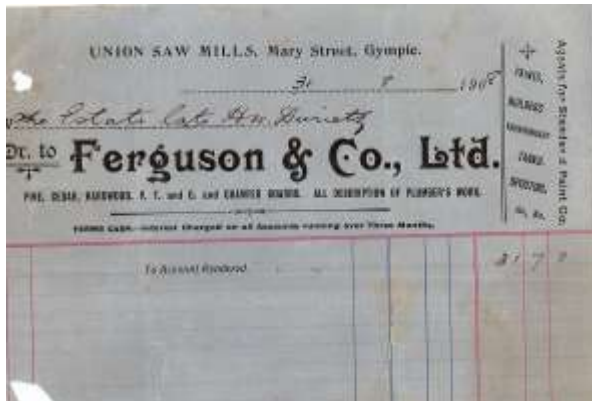 UNION SAW MILLS, Mary Street, Gympie.
31 8 1908
The Estate late Hn.
Dr. to Ferguson & Co., Ltd.
PINE, CEDAR, HARDWOOD, P. T. and G. and CHAMFER BOARDS. ALL DESCRIPTION OF PLUMBER'S WORK.
TERMS CASH.—Interest Charged on all Accounts running over Three Months.
To Account Rendered
TANKS,
SPOUTING,
&c., &c.
Agents for Paint Co.